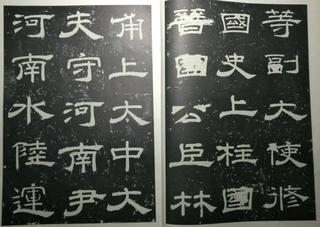 等副大使修
國史上柱國
晉國公臣林
甫上大中大
夫守河南尹
河南水陸運